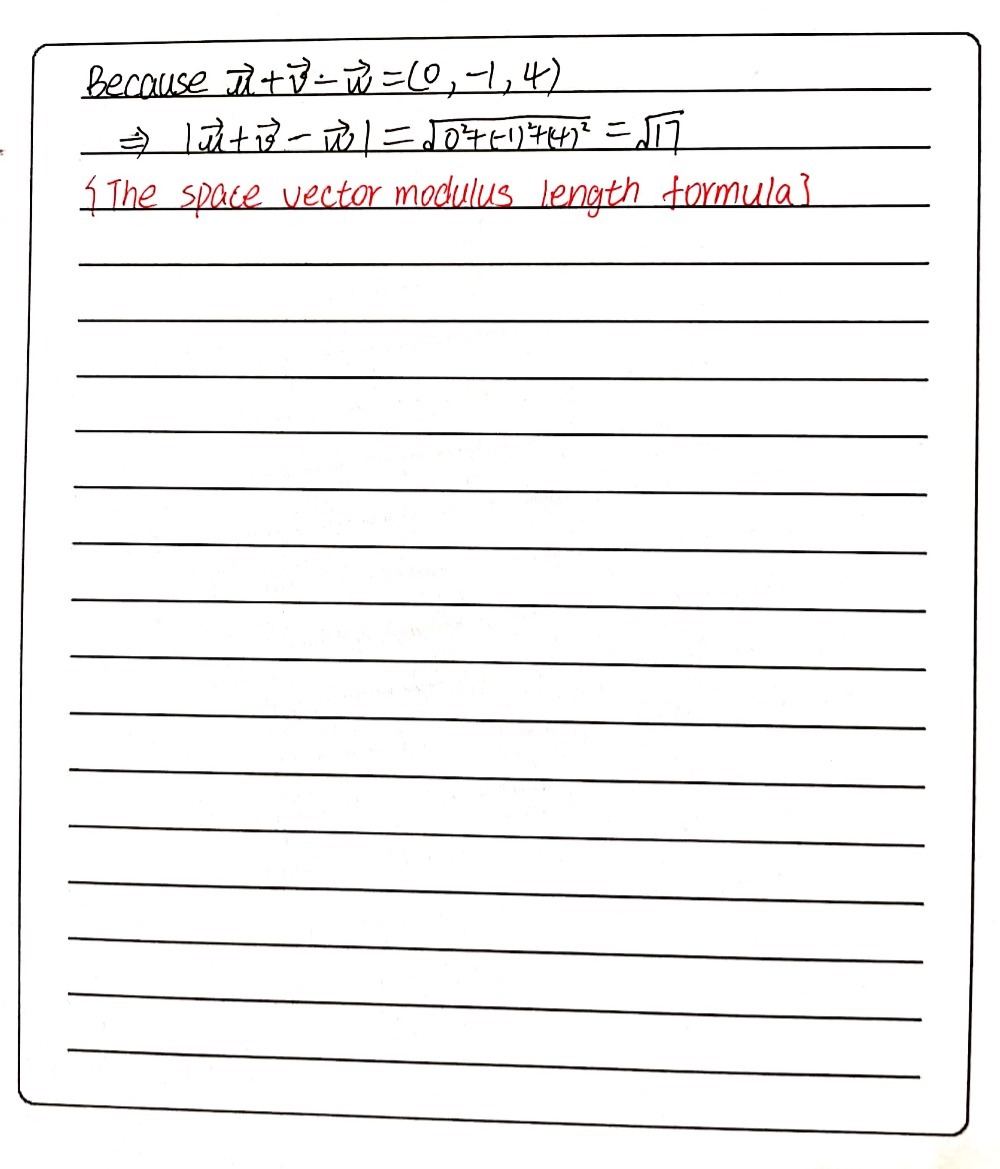 Because u⃗+v⃗-w⃗=(0,-1,4)
⇒ |u⃗+v⃗-w⃗|=√(0²+(-1)²+(4)²)=√17
{The space vector modulus length formula}